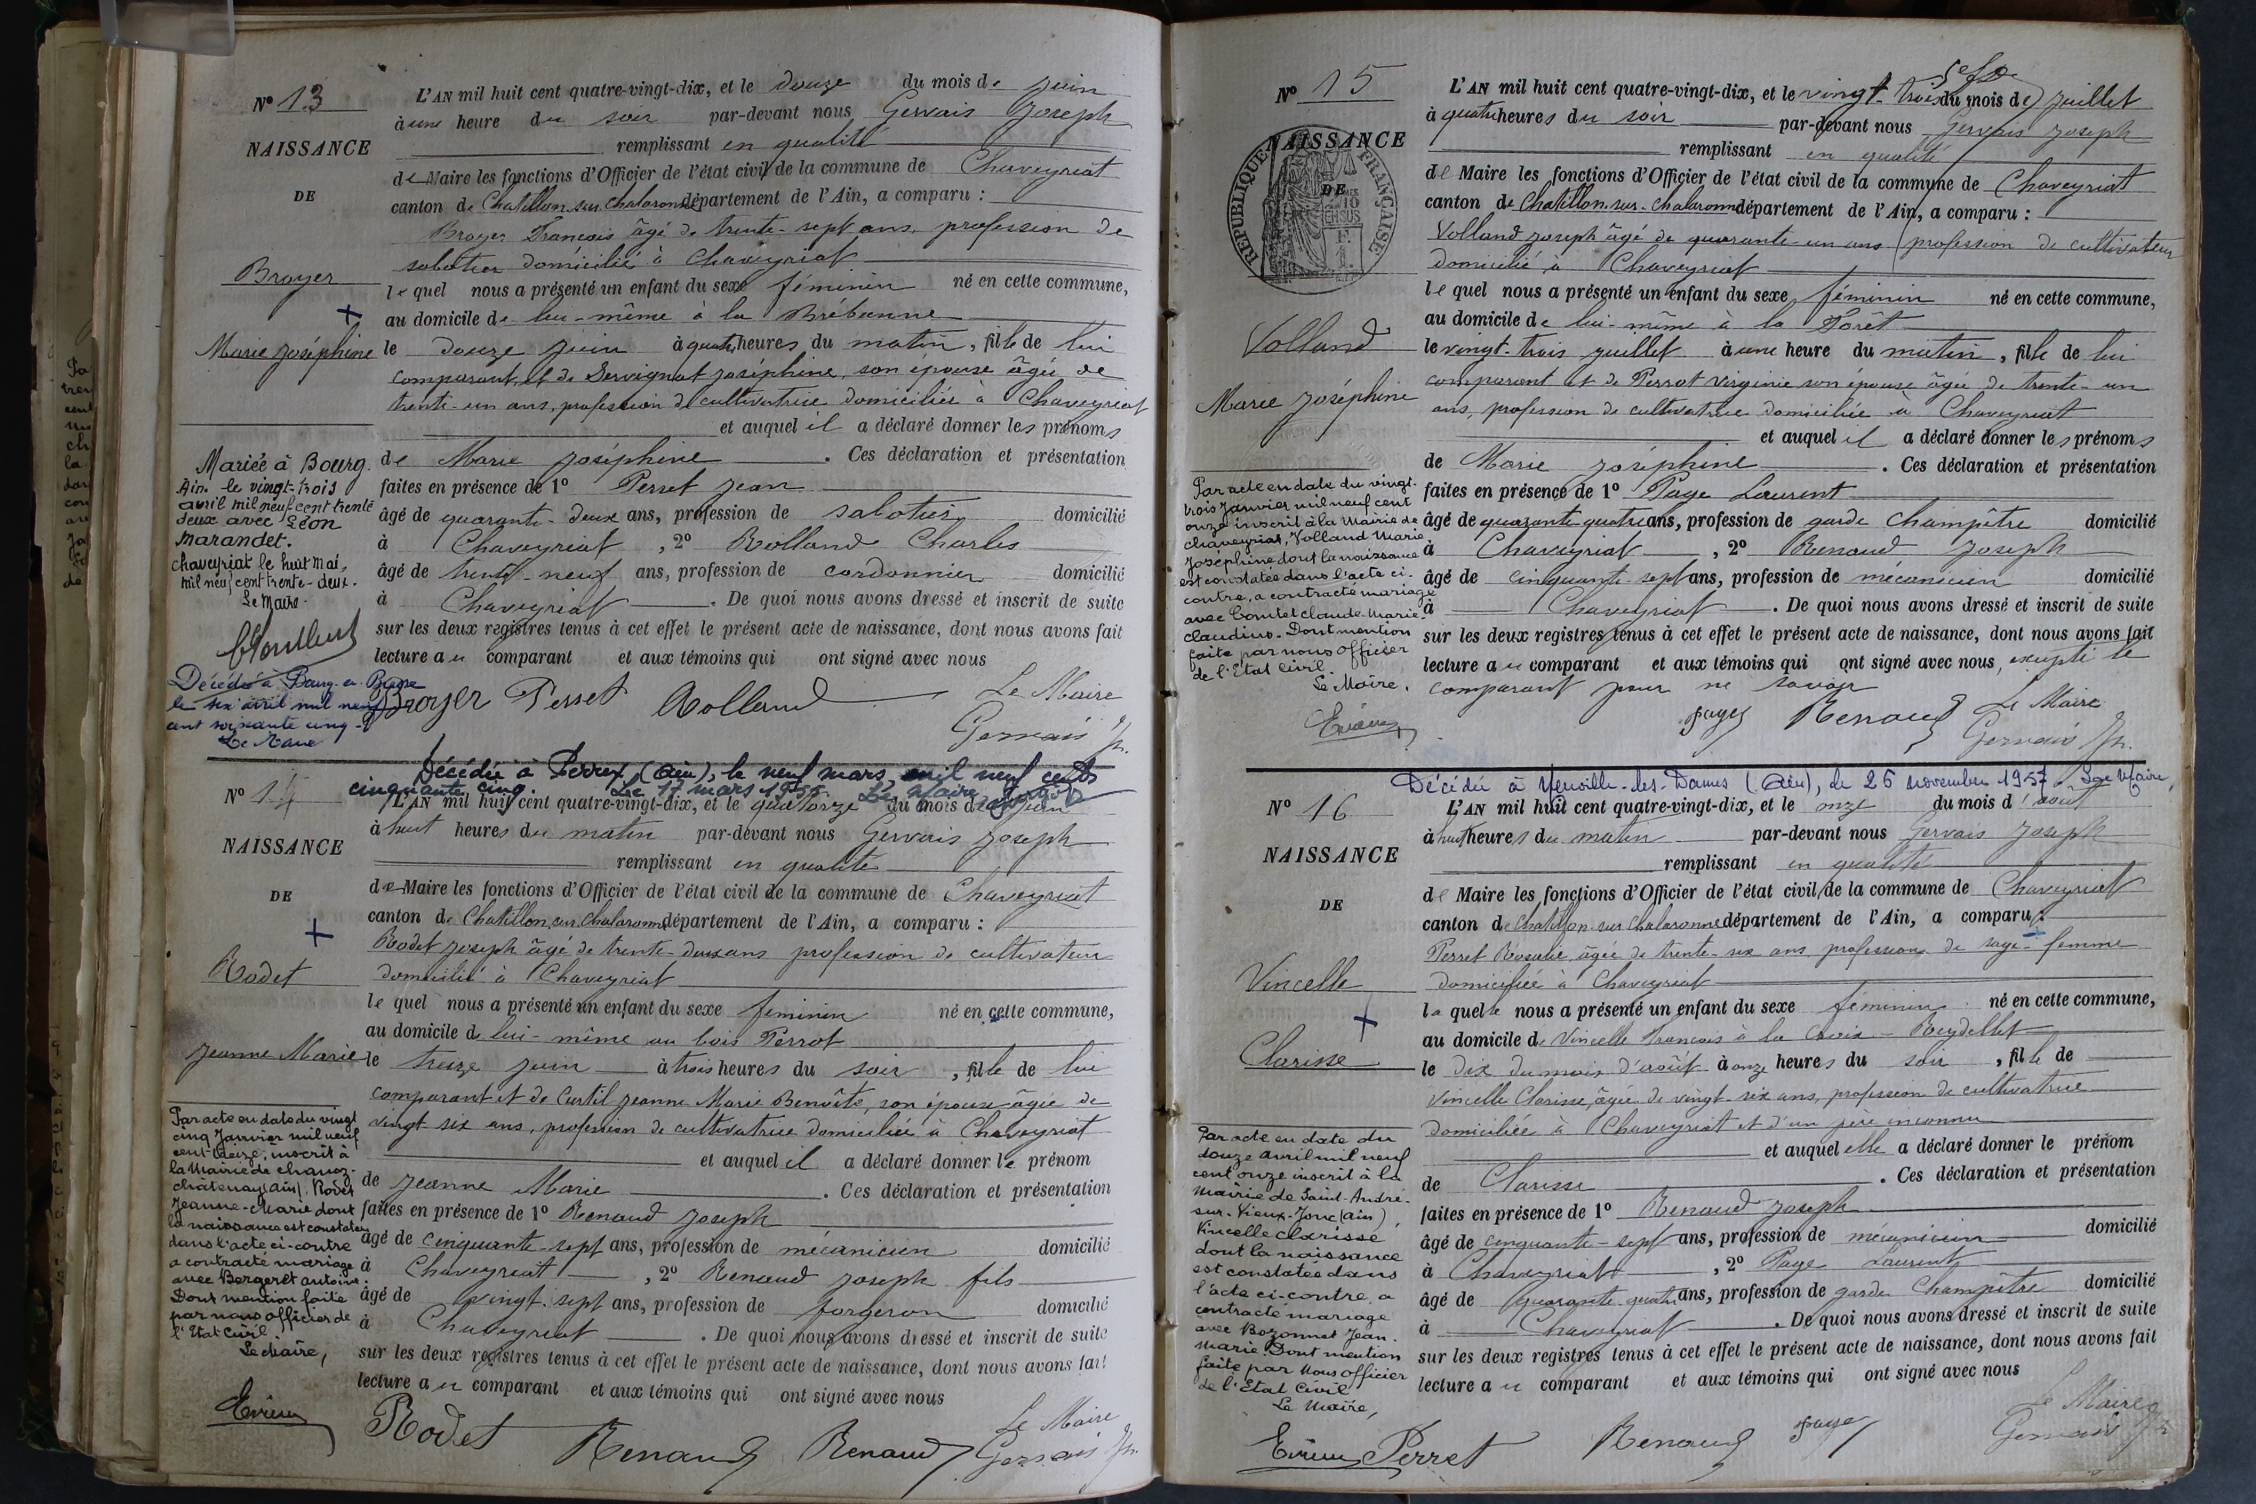 N° 13
NAISSANCE
DE
Broyer
Marie Joséphine
L'AN mil huit cent quatre-vingt-dix, et le douze du mois de juin
à une heure du soir par-devant nous Gervais Joseph
remplissant en qualité
de Maire les fonctions d'Officier de l'état civil de la commune de Chaveyriat
canton de Chatillon sur Chalaronne département de l'Ain, a comparu :
Broyer François âgé de trente-sept ans, profession de
sabotier domicilié à Chaveyriat
lequel nous a présenté un enfant du sexe féminin né en cette commune,
au domicile de lui-même à la Brébanne
le douze juin à quatre heures du matin, fille de lui
comparant, et de Servignat Joséphine, son épouse âgée de
trente-un ans, profession de cultivatrice domiciliée à Chaveyriat
et auquel il a déclaré donner les prénoms
de Marie Joséphine. Ces déclaration et présentation
faites en présence de 1° Perret Jean
âgé de quarante-deux ans, profession de sabotier domicilié
à Chaveyriat, 2° Rolland Charles
âgé de trente-neuf ans, profession de cordonnier domicilié
à Chaveyriat. De quoi nous avons dressé et inscrit de suite
sur les deux registres tenus à cet effet le présent acte de naissance, dont nous avons fait
lecture au comparant et aux témoins qui ont signé avec nous
Broyer Perret Rolland Le Maire
Gervais Jh.
Mariée à Bourg.
Ain. le vingt-trois
avril mil neuf cent trente
deux avec Léon
Marandet.
Chaveyriat le huit Mai,
mil neuf cent trente-deux.
Le Maire.
Décédée à Bourg-en-Bresse
le six avril mil neuf
cent soixante cinq
Le Maire
Décédée à Perrex (Ain), le neuf mars, mil neuf cent
cinquante cinq. Le 17 mars 1955 Le Maire
N° 14
NAISSANCE
DE
Rodet
Jeanne Marie
L'AN mil huit cent quatre-vingt-dix, et le quatorze du mois de juin
à huit heures du matin par-devant nous Gervais Joseph
remplissant en qualité
de Maire les fonctions d'Officier de l'état civil de la commune de Chaveyriat
canton de Chatillon sur Chalaronne département de l'Ain, a comparu :
Rodet Joseph âgé de trente-deux ans profession de cultivateur
domicilié à Chaveyriat
lequel nous a présenté un enfant du sexe féminin né en cette commune,
au domicile de lui-même au bois Perrot
le treize juin à trois heures du soir, fille de lui
comparant et de Curtil Jeanne Marie Benoîte, son épouse âgée de
vingt six ans, profession de cultivatrice domiciliée à Chaveyriat
et auquel il a déclaré donner le prénom
de Jeanne Marie. Ces déclaration et présentation
faites en présence de 1° Renaud Joseph
âgé de cinquante-sept ans, profession de mécanicien domicilié
à Chaveyriat, 2° Renaud Joseph fils
âgé de vingt-sept ans, profession de forgeron domicilié
à Chaveyriat. De quoi nous avons dressé et inscrit de suite
sur les deux registres tenus à cet effet le présent acte de naissance, dont nous avons fait
lecture au comparant et aux témoins qui ont signé avec nous
Rodet Renaud Renaud Le Maire
Gervais Jh.
Par acte en date du vingt
cinq Janvier mil neuf
cent treize, inscrit à
la Mairie de Chanoz-
châtenay (Ain), Rodet
Jeanne-Marie dont
la naissance est constatée
dans l'acte ci-contre
a contracté mariage
avec Bergeret Antoine.
Dont mention faite
par nous officier de
l'Etat Civil.
Le Maire,
N° 15
NAISSANCE
DE
RÉPUBLIQUE FRANÇAISE
Volland
Marie Joséphine
L'AN mil huit cent quatre-vingt-dix, et le vingt-trois du mois de juillet
à quatre heures du soir par-devant nous Gervais Joseph
remplissant en qualité
de Maire les fonctions d'Officier de l'état civil de la commune de Chaveyriat
canton de Chatillon-sur-Chalaronne département de l'Ain, a comparu :
Volland Joseph âgé de quarante-un ans profession de cultivateur
domicilié à Chaveyriat
lequel nous a présenté un enfant du sexe féminin né en cette commune,
au domicile de lui-même à la Forêt
le vingt-trois juillet à une heure du matin, fille de lui
comparant et de Perrot Virginie son épouse âgée de trente-un
ans, profession de cultivatrice domiciliée à Chaveyriat
et auquel il a déclaré donner les prénoms
de Marie Joséphine. Ces déclaration et présentation
faites en présence de 1° Page Laurent
âgé de quarante quatre ans, profession de garde champêtre domicilié
à Chaveyriat, 2° Renaud Joseph
âgé de cinquante-sept ans, profession de mécanicien domicilié
à Chaveyriat. De quoi nous avons dressé et inscrit de suite
sur les deux registres tenus à cet effet le présent acte de naissance, dont nous avons fait
lecture au comparant et aux témoins qui ont signé avec nous, excepté le
comparant pour ne savoir
Page Renaud Le Maire
Gervais Jh.
Par acte en date du vingt-
trois Janvier mil neuf cent
onze inscrit à la Mairie de
Chaveyriat, Volland Marie
Joséphine dont la naissance
est constatée dans l'acte ci-
contre, a contracté mariage
avec Comtet Claude-Marie-
Claudius. Dont mention
faite par nous officier
de l'Etat Civil.
Le Maire.
Décédée à Neuville-les-Dames (Ain), le 26 novembre 1957 Le Maire,
N° 16
NAISSANCE
DE
Vincelle
Clarisse
L'AN mil huit cent quatre-vingt-dix, et le onze du mois d'août
à huit heures du matin par-devant nous Gervais Joseph
remplissant en qualité
de Maire les fonctions d'Officier de l'état civil de la commune de Chaveyriat
canton de Chatillon-sur-Chalaronne département de l'Ain, a comparu :
Perret Rosalie âgée de trente-six ans profession de sage-femme
domiciliée à Chaveyriat
laquelle nous a présenté un enfant du sexe féminin né en cette commune,
au domicile de Vincelle François à la Croix-Reydellet
le dix du mois d'août à onze heures du soir, fille de
Vincelle Clarisse, âgée de vingt-six ans, profession de cultivatrice
domiciliée à Chaveyriat et d'un père inconnu
et auquel elle a déclaré donner le prénom
de Clarisse. Ces déclaration et présentation
faites en présence de 1° Renaud Joseph
âgé de cinquante-sept ans, profession de mécanicien domicilié
à Chaveyriat, 2° Page Laurent
âgé de quarante-quatre ans, profession de garde champêtre domicilié
à Chaveyriat. De quoi nous avons dressé et inscrit de suite
sur les deux registres tenus à cet effet le présent acte de naissance, dont nous avons fait
lecture au comparant et aux témoins qui ont signé avec nous
Perret Renaud Page Le Maire
Gervais Jh
Par acte en date du
douze avril mil neuf
cent onze inscrit à la
Mairie de Saint-André-
sur-Vieux-Jonc (Ain)
Vincelle Clarisse
dont la naissance
est constatée dans
l'acte ci-contre, a
contracté mariage
avec Bozonnet Jean-
Marie. Dont mention
faite par Nous officier
de l'Etat Civil
Le Maire,